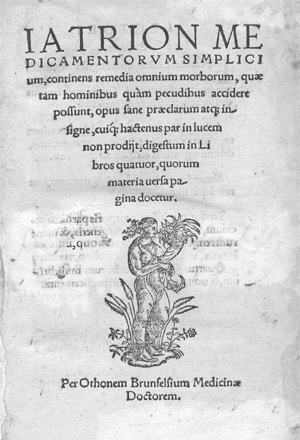 IATRION ME
DICAMENTORVM SIMPLICI
um, continens remedia omnium morborum, quæ
tam hominibus quàm pecudibus accidere
possunt, opus sane præclarum atq; in-
signe, cuiq; hactenus par in lucem
non prodijt, digestum in Li
bros quatuor, quorum
materia uersa pa
gina docetur.
Per Othonem Brunfelsium Medicinæ
Doctorem.